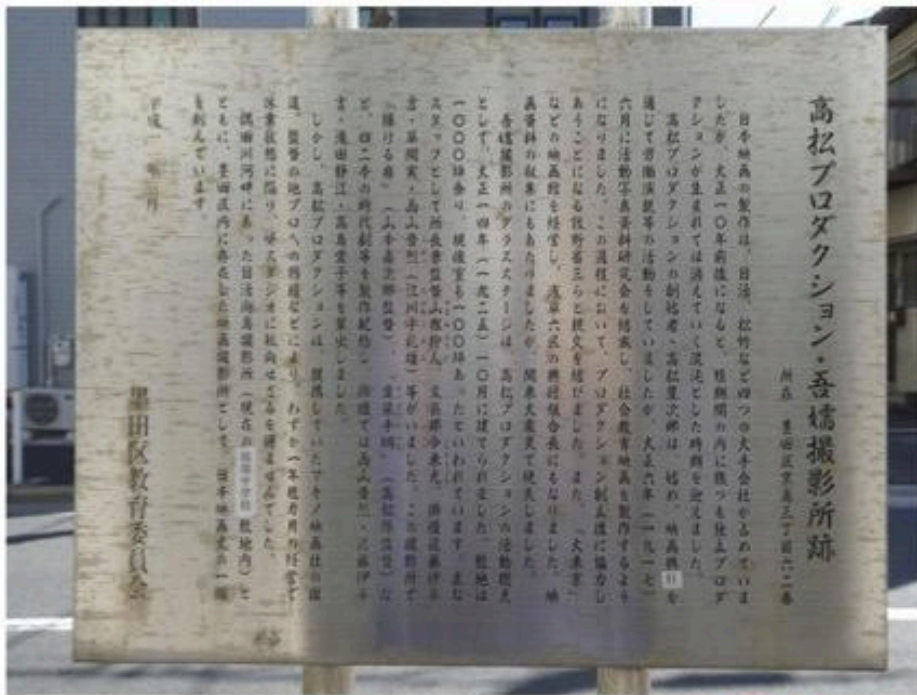 高松プロダクション・吾嬬撮影所跡
所在 墨田区京島三丁目六二番
日本映画の製作は、日活、松竹など四つの大手会社が占めていま
したが、大正一〇年前後になると、短期間の内に幾つも独立プロダ
クションが生まれては消えていく混沌とした時期を迎えました。
高松プロダクションの創始者・高松豊次郎は、始め、映画興行を
通じて労働演説等の活動をしていましたが、大正六年（一九一七）
六月に活動写真資料研究会を結成し、社会教育映画を製作するよう
になりました。この過程において、プロダクション創立後に協力し
あうことになる牧野省三らと親交を結びました。また、「大東京」
などの映画館を経営し、浅草六区の興行組合長にもなりました。映
画資料の収集にもあたりましたが、関東大震災で焼失しました。
吾嬬撮影所のグラスステージは、高松プロダクションの活動拠点
として、大正一四年（一九二五）一〇月に建てられました。敷地は
一〇〇〇坪余り、現像室も一〇〇坪あったといわれています。主な
スタッフとして所長兼監督山根幹人、文芸部寿々喜多、俳優佐藤伊
言・草間実・高山晋烈（江川宇礼雄）等がいました。この撮影所で
「輝ける扉」（山本嘉次郎監督）、（高松 監督）な
ど、四二本の時代劇等を製作配給し、
言・浅田静江・高島愛子等を輩出しました。
しかし、高松プロダクションは、提携していたマキノ映画社の独
退、監督の他プロへの移籍などにより、わずか一年 か月の経営で
休業状態に陥り、貸スタジオに転向せざるを得ませんでした。
隅田川河畔にあった日活向島撮影所（現在の桜堤中学校敷地内）と
ともに、墨田区内に存在した映画撮影所として、日本映画史の一端
を刻んでいます。
平成一 年三月
墨田区教育委員会